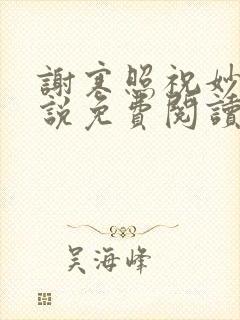 謝寒照祝妙
說免費閱讀
吴海峰